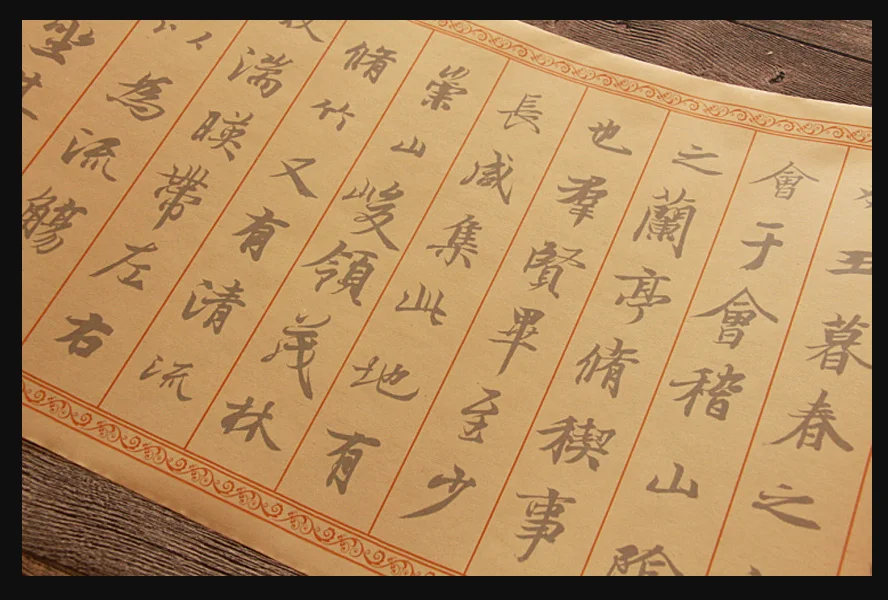 丑暮春之
會于會稽山陰
之蘭亭脩稧事
也羣賢畢至少
長咸集此地有
崇山峻領茂林
脩竹又有清流
湍暎帶左右
以為流觴
坐其